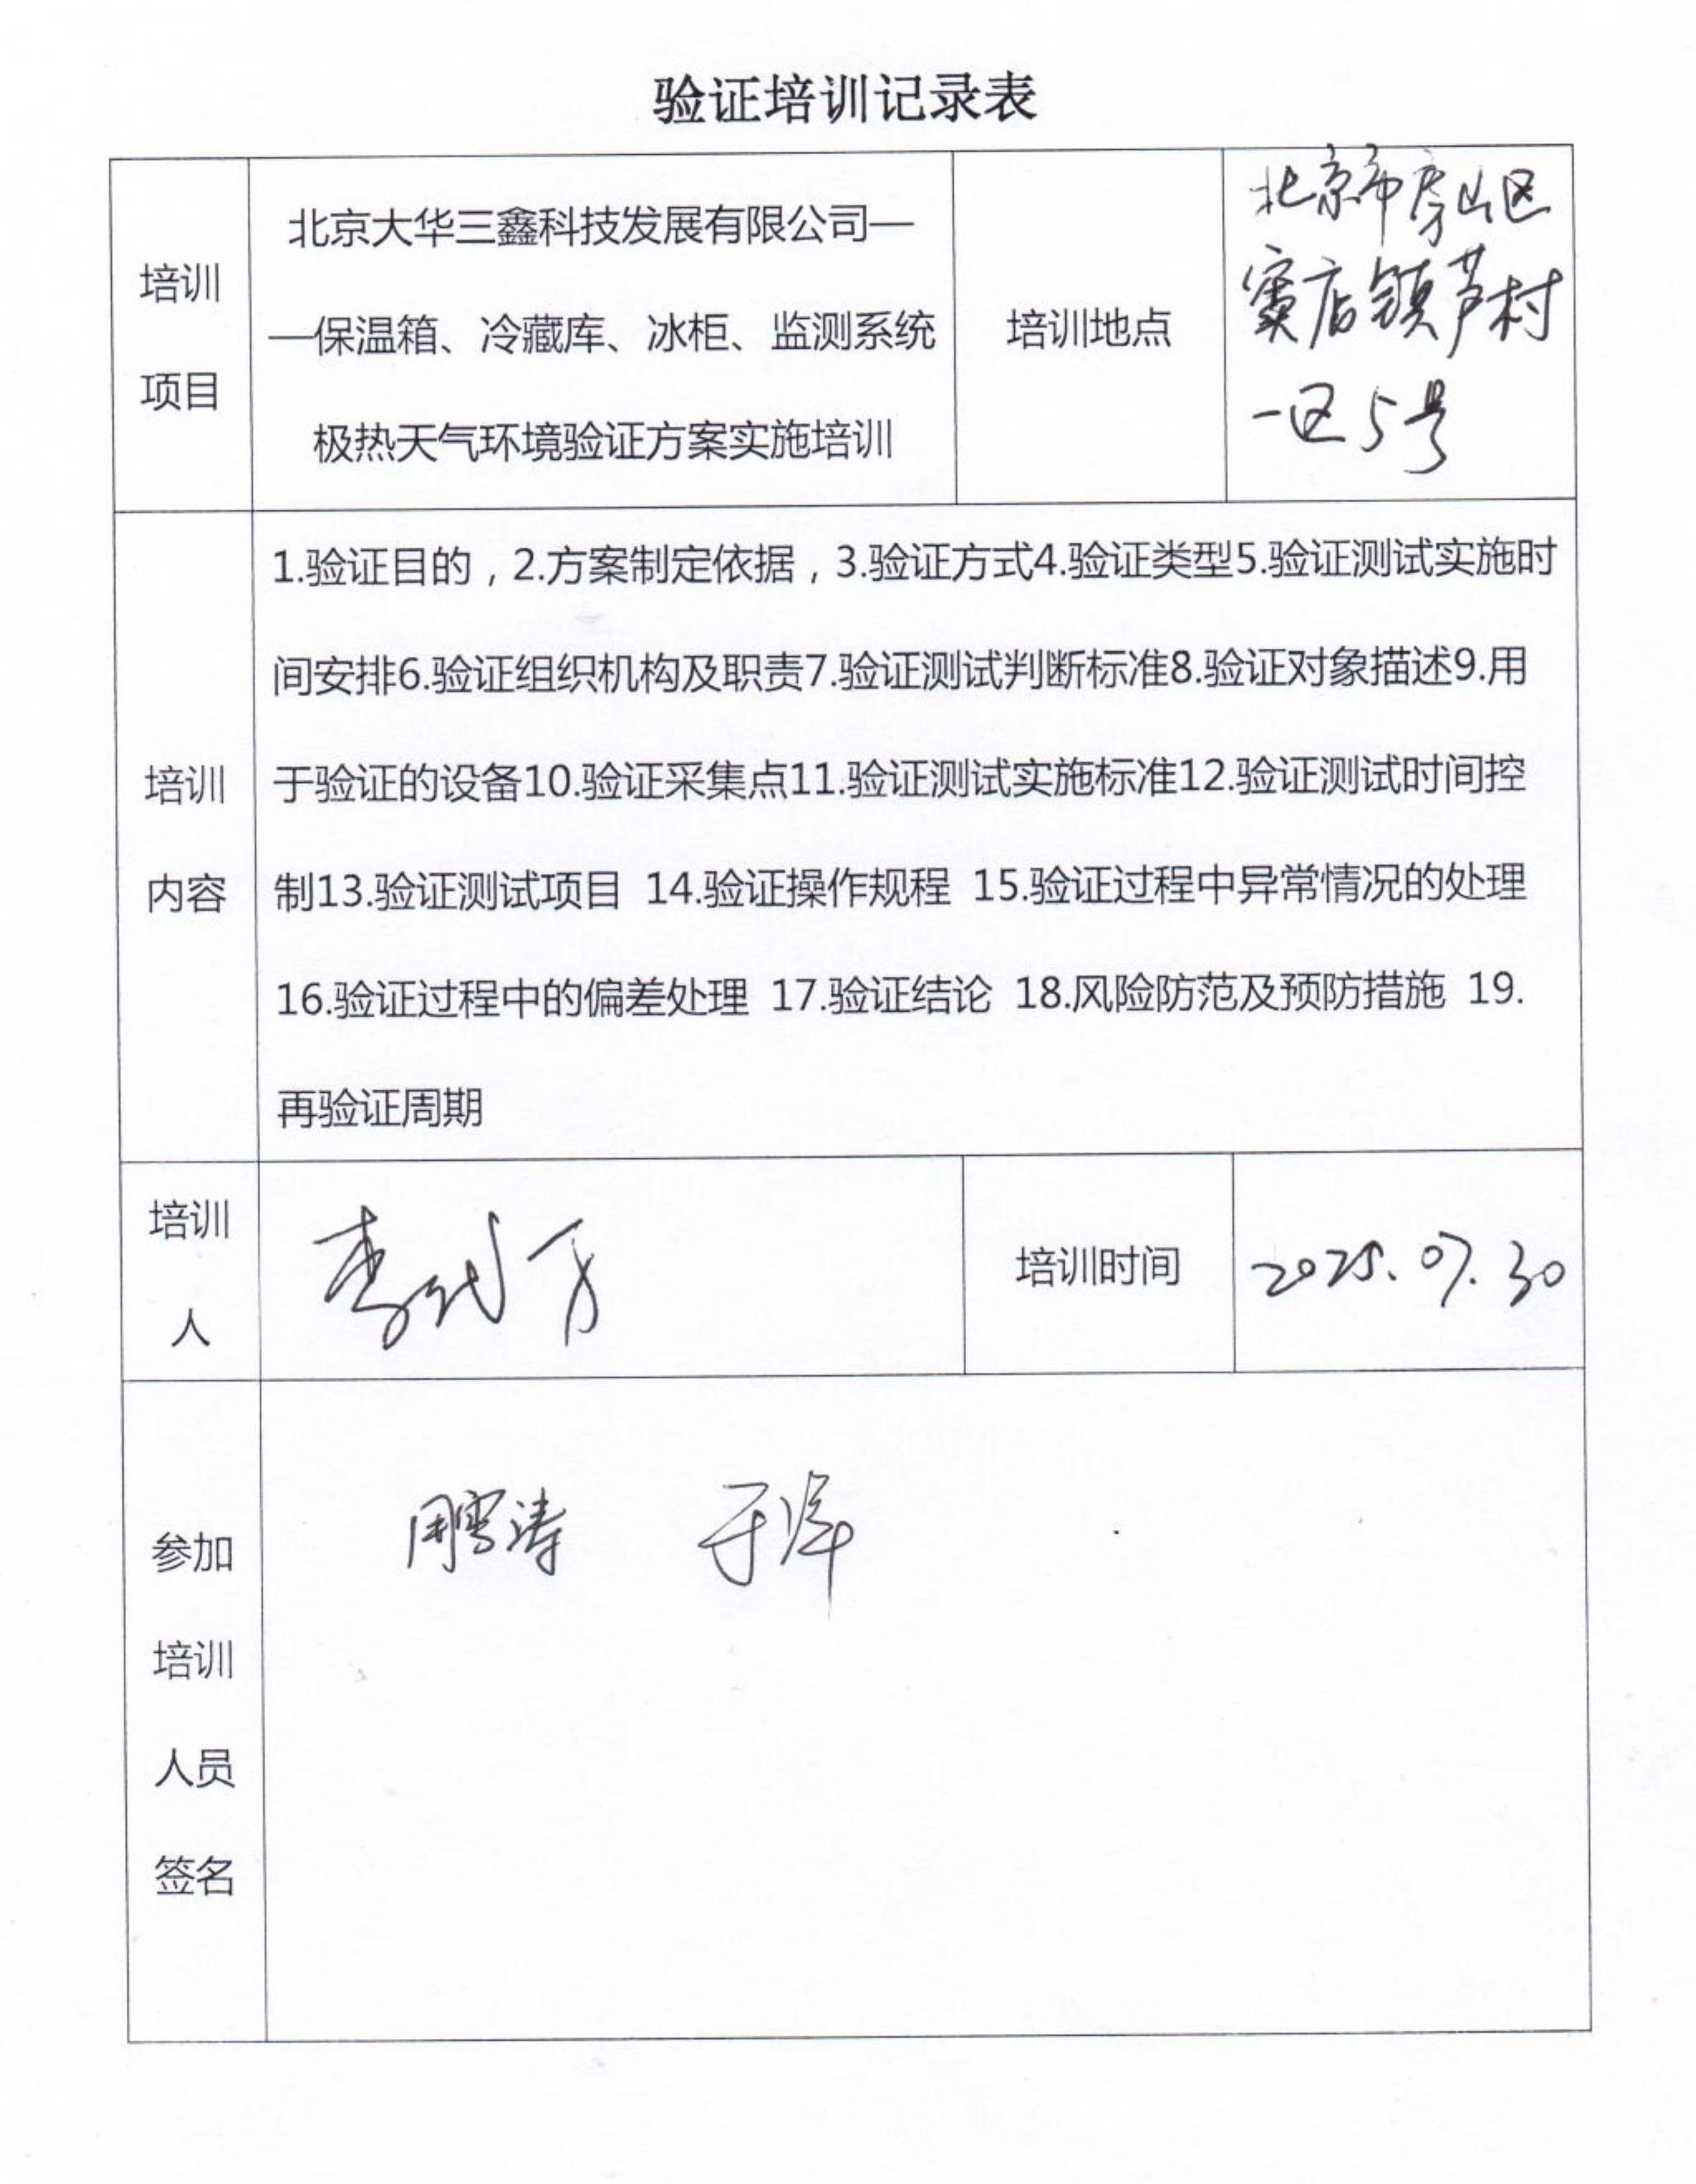 验证培训记录表
培训
项目
北京大华三鑫科技发展有限公司—
—保温箱、冷藏库、冰柜、监测系统
极热天气环境验证方案实施培训
培训地点
北京市房山区
窦店镇芦村
一区5号
培训
内容
1.验证目的，2.方案制定依据，3.验证方式4.验证类型5.验证测试实施时
间安排6.验证组织机构及职责7.验证测试判断标准8.验证对象描述9.用
于验证的设备10.验证采集点11.验证测试实施标准12.验证测试时间控
制13.验证测试项目 14.验证操作规程 15.验证过程中异常情况的处理
16.验证过程中的偏差处理 17.验证结论 18.风险防范及预防措施 19.
再验证周期
培训
人
培训时间
2025.07.30
参加
培训
人员
签名